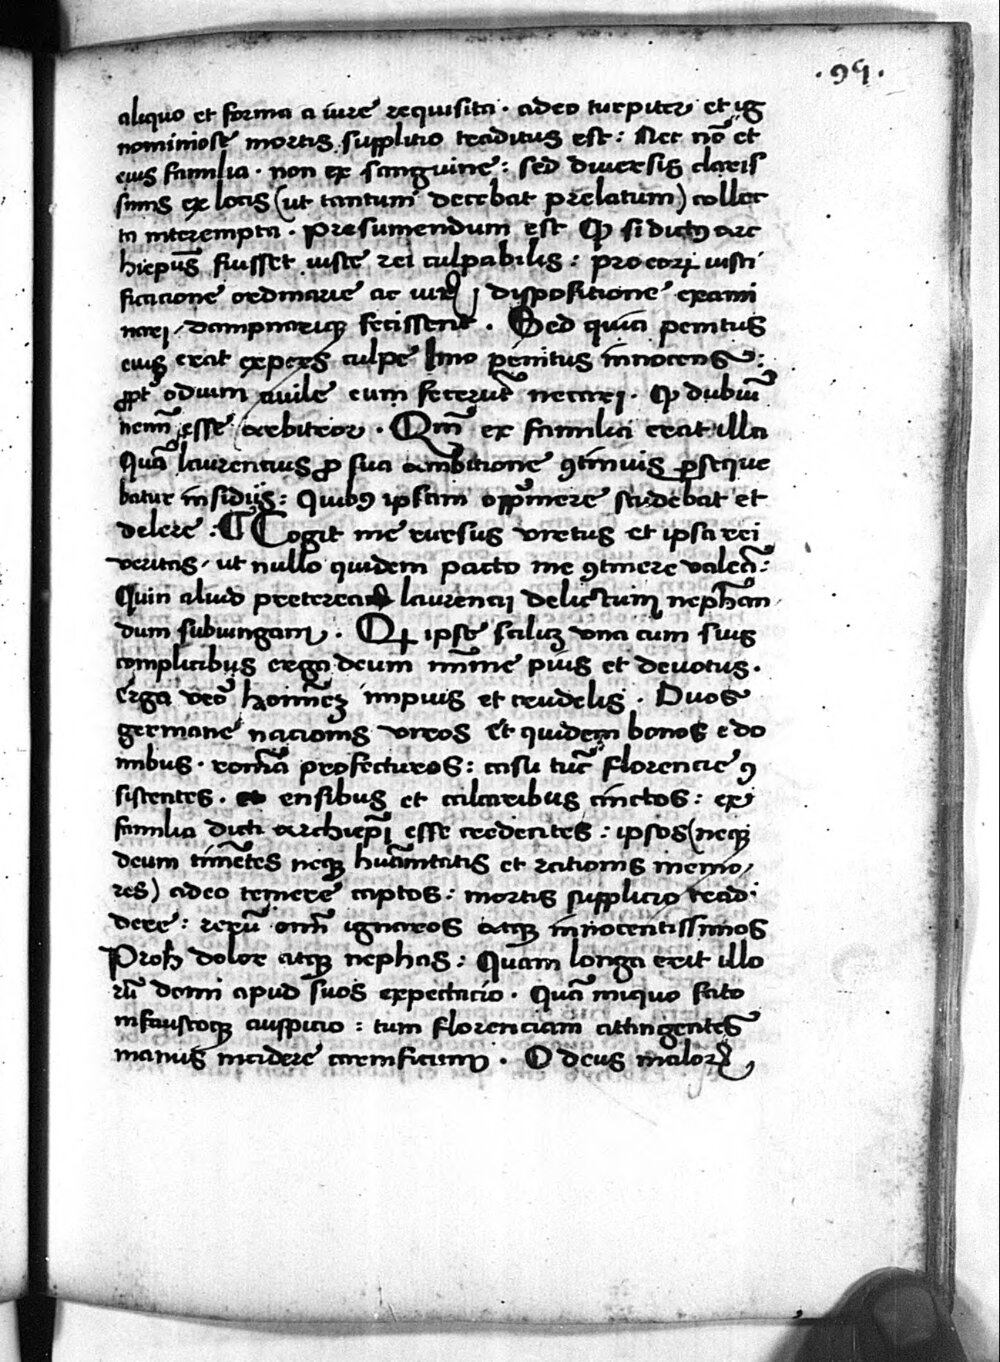 .99.
aliquo et forma a iure requisita · adeo turpiter et ig
nominiose mortis supplitio traditus est : Nec nō et
eius familia · non ex sanguine : sed diuersis claris
simis ex locis (ut tantum decebat prelatum) collec
ta interempta · Presumendum est Qͥ si dictꝯ arc
hiepūs fuisset iuste rei culpabilis : pro eorꝝ iusti
ficacione ordinarie ac iurꝭ dispositione exami
nari / dampnariqꝫ fecissent · Sed quia penitus
eius erat expers culpe Imo penitus innocens :
ꝓpt̄ odium ciuile eum fecerūt necari · Qͥ dubiū
nemī esse arbitror · Qm̄ ex familia erat illa
Quā laurencius ꝓ sua ambitione ꝯtinuis ꝑseque
batur insidijs : Quibꝯ ipsam opp̄mere studebat et
delere : ¶ Cogit me rursus uirtus et ipsa rei
veritas / ut nullo quidem pacto me ꝯtinere valeā :
Quin aliud preterea laurencij delictum nephan
dum subiungam · Qͥ ipse scilicꝫ una cum suis
complicibus erga deum minīe pius et deuotus ·
erga uero hoīnes impius et crudelis · Duos
germane nacionis uiros Et quidem bonos e do
mibus · romā profecturos : casu tūc Florencie ꝯ
sistentes · ensibus et calcaribus cinctos : ex
familia dicti archiepī esse credentes : ipsos (neqꝫ
deum timētes neqꝫ huāmitatis et rationis memo
res) adeo temere captos : mortis supplicio tradi
dere : rerū omī ignaros atqꝫ innocentissimos
Proh dolor atqꝫ nephas : Quam longa erit illo
rū domi apud suos expectacio · Quā iniquo fato
infaustoqꝫ auspicio : tum florenciam attingentes
manus incidere carnificum · O deus malorꝝ